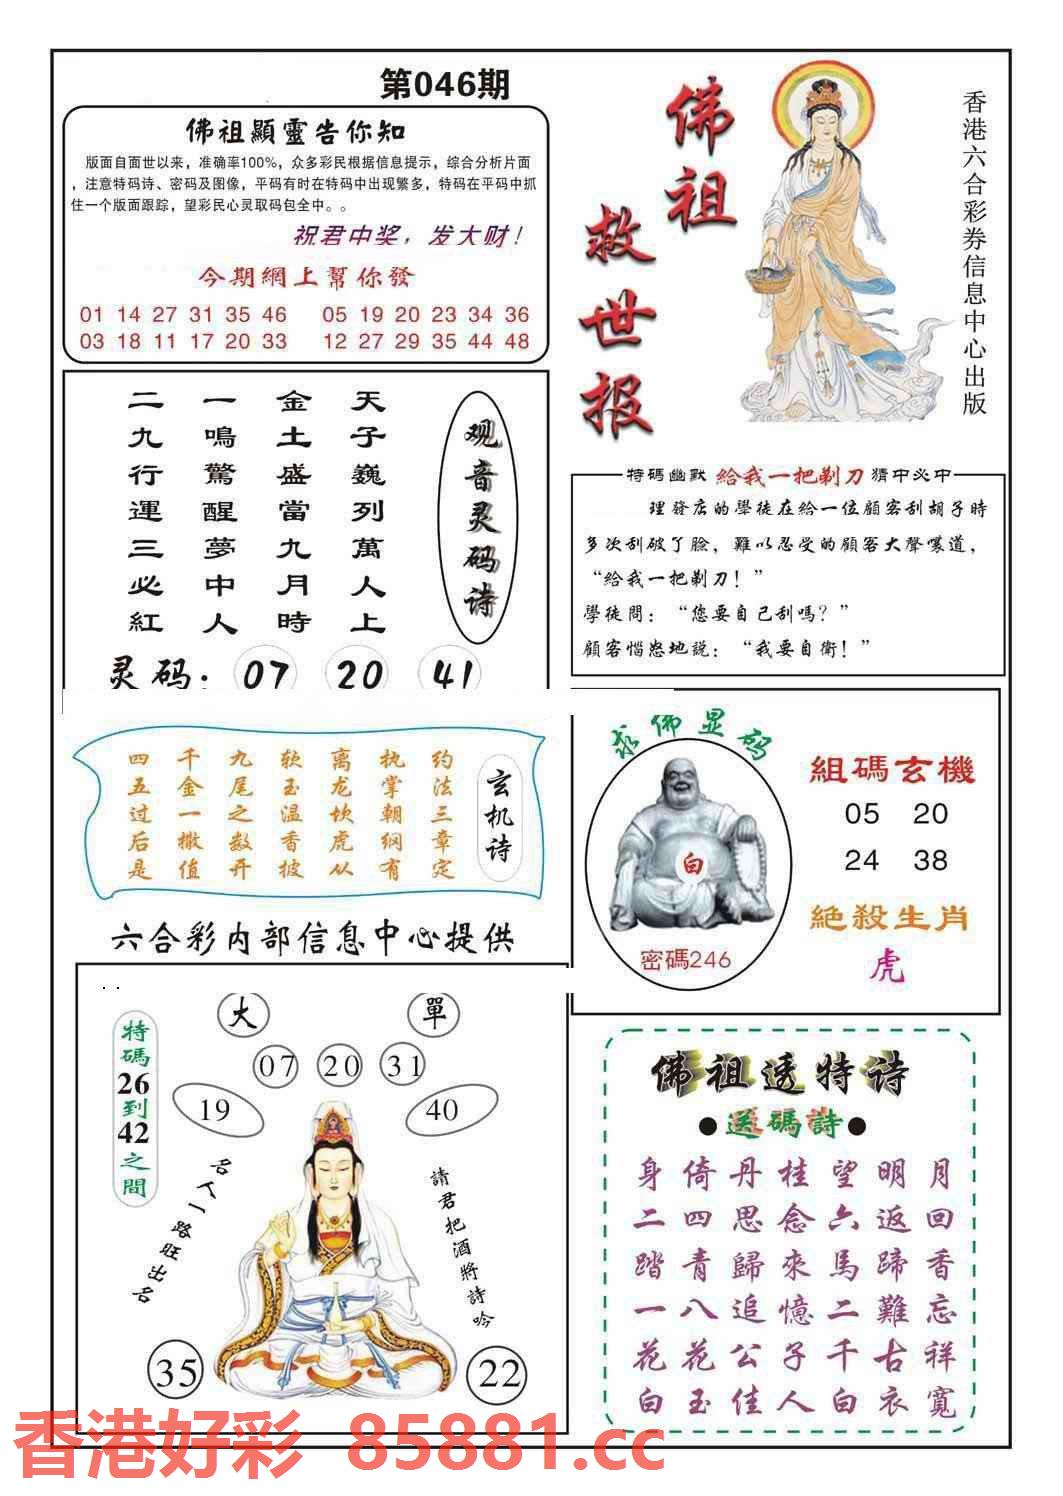 第046期
佛祖顯靈告你知
版面自面世以来，准确率100%，众多彩民根据信息提示，综合分析片面
，注意特码诗、密码及图像，平码有时在特码中出现繁多，特码在平码中抓
住一个版面跟踪，望彩民心灵取码包全中。。
祝君中奖，发大财！
今期網上幫你發
01 14 27 31 35 46 05 19 20 23 34 36
03 18 11 17 20 33 12 27 29 35 44 48
佛祖
救世报
香港六合彩券信息中心出版
观音灵码诗
天子巍列萬人上
金土盛當九月時
一鳴驚醒夢中人
二九行運三必紅
灵码：07 20 41
特碼幽默 給我一把剃刀 猜中必中
理發店的學徒在給一位顧客刮胡子時
多次刮破了臉，難以忍受的顧客大聲嚷道，
“給我一把剃刀！”
學徒問：“您要自己刮嗎？”
顧客惱怒地説：“我要自衛！”
玄机诗
约法三章定
执掌朝纲有
离龙坎虎从
软玉温香披
九尾之数开
千金一撒值
四五过后是
求佛显码
白
密碼246
組碼玄機
05 20
24 38
絕殺生肖
虎
六合彩内部信息中心提供
大
單
07 20 31
19
40
特碼26到42之間
名人一路旺出名
請君把酒將詩吟
35
22
佛祖透特诗
●送碼詩●
身倚丹桂望明月
二四思念六返回
踏青歸來馬蹄香
一八追憶二難忘
花花公子千古祥
白玉佳人白衣寬
香港好彩 85881.cc